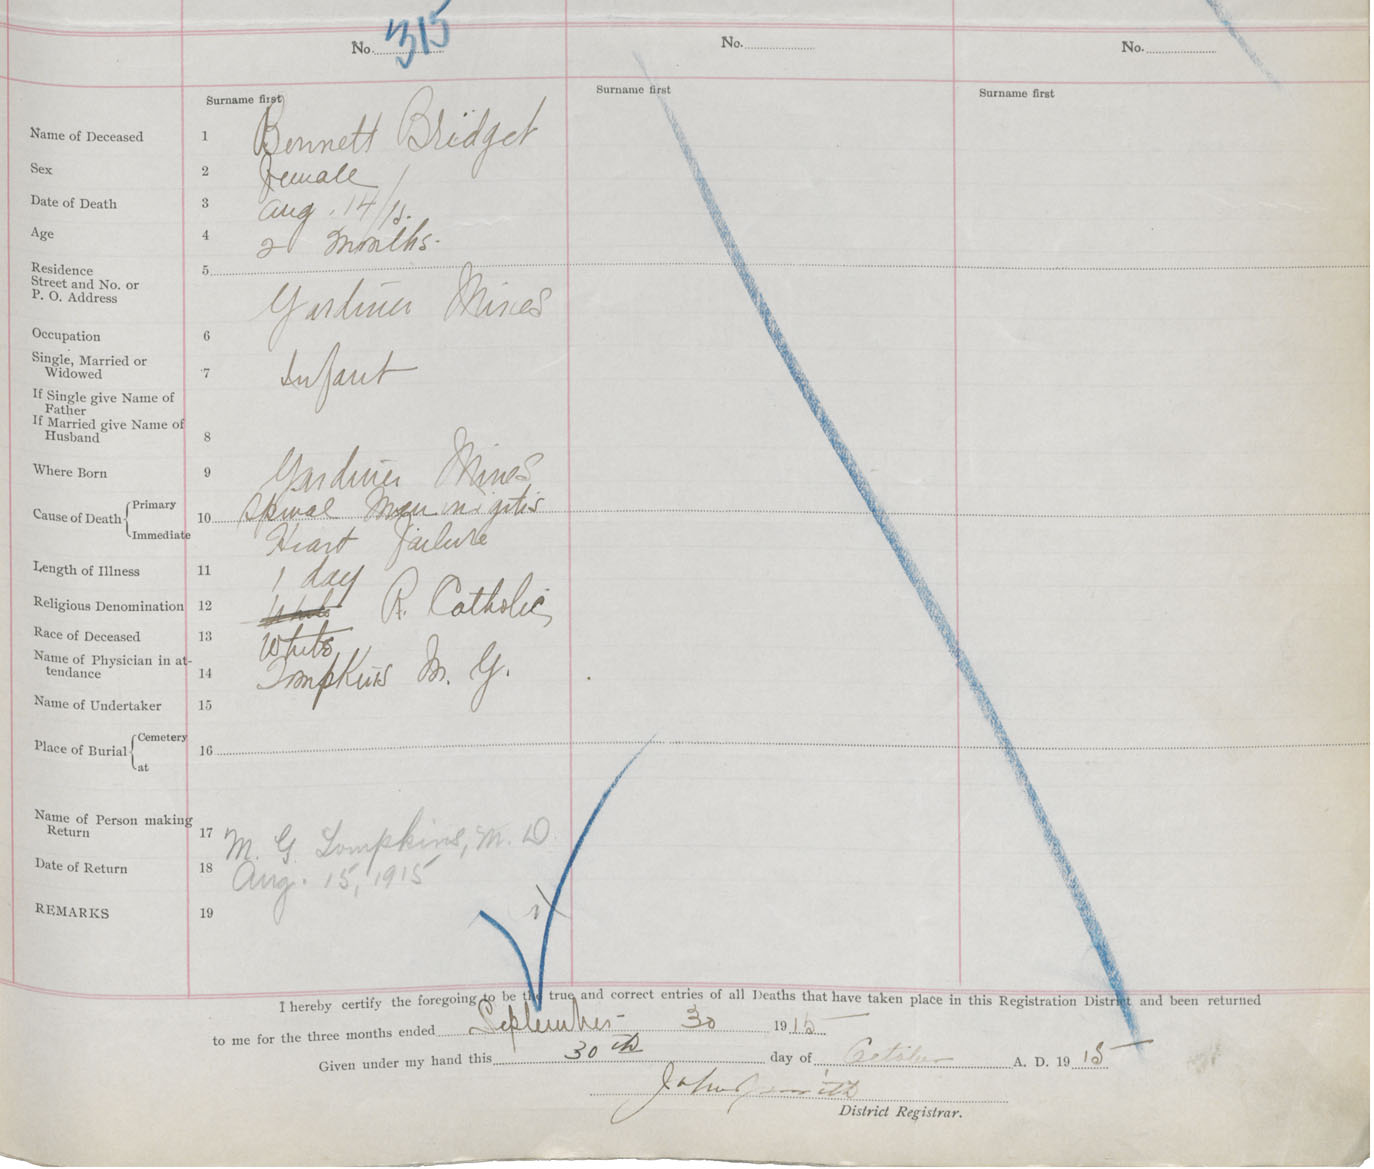 No. 315 No. No.
Surname first Surname first Surname first
Name of Deceased 1 Bennett Bridget
Sex 2 Female
Date of Death 3 Aug. 14/15.
Age 4 2 Months.
Residence 5
Street and No. or
P. O. Address Gardiner Mines
Occupation 6
Single, Married or
Widowed 7 Infant
If Single give Name of
Father
If Married give Name of
Husband 8
Where Born 9 Gardiner Mines
Cause of Death Primary 10 Spinal Meningitis
Immediate Heart failure
Length of Illness 11 1 day
Religious Denomination 12 White R. Catholic
Race of Deceased 13 White
Name of Physician in at-
tendance 14 Tompkins M. G.
Name of Undertaker 15
Place of Burial Cemetery 16
at
Name of Person making
Return 17 M. G. Tompkins, M. D.
Date of Return 18 Aug. 15, 1915
REMARKS 19
I hereby certify the foregoing to be the true and correct entries of all Deaths that have taken place in this Registration District and been returned
to me for the three months ended September 30 1915
Given under my hand this 30th day of October A. D. 1915
John Smith
District Registrar.